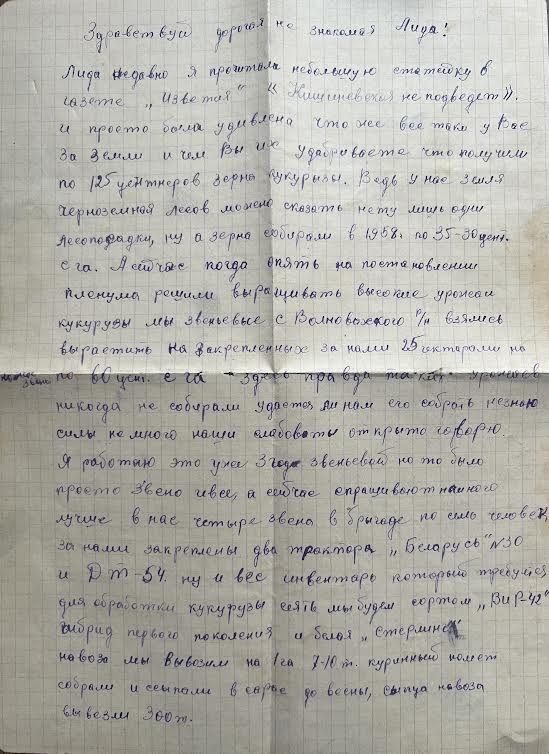 Здравствуй дорогая не знакомая Лида!
Лида недавно я прочитала небольшую статейку в
газете „Известия" „Кишиневская не подведет".
и просто была удивлена что же все таки у Вас
за земли и чем Вы их удабриваете что получили
по 125 центнеров зерна кукурызы. Ведь у нас земля
черноземная лесов можно сказать нету лишь одни
лесопорадки, ну а зерна собирали в 1958г. по 35-30 цент.
с га. А сейчас когда опять на постановлении
пленума решили выращивать высокие урожаи
кукурузы мы звеньевые с Волновахского р/н взялись
вырастить на закрепленных за нами 25 гектарами на
по 60 цент. с га здесь правда таких урожаев
никогда не собирали удастся ли нам его собрать незнаю
силы немного наши слабоваты открыто говорю.
Я работаю это уже 3 года звеньевой но то было
просто звено и все, а сейчас спрашивают намного
лучше в нас четыре звена в бригаде по семь человек,
за нами закреплены два трактора „Беларусь" №30
и ДТ-54. ну и вес инвентарь который требуется
для обработки кукурузы сеять мы будем сортом „ВИР-42"
гибрид первого поколения и белая „стерлинг"
навоза мы вывозим на 1га 7-10т. куринный помет
собрали и ссыпали в сарае до весны, навоза
вывезли 300т.